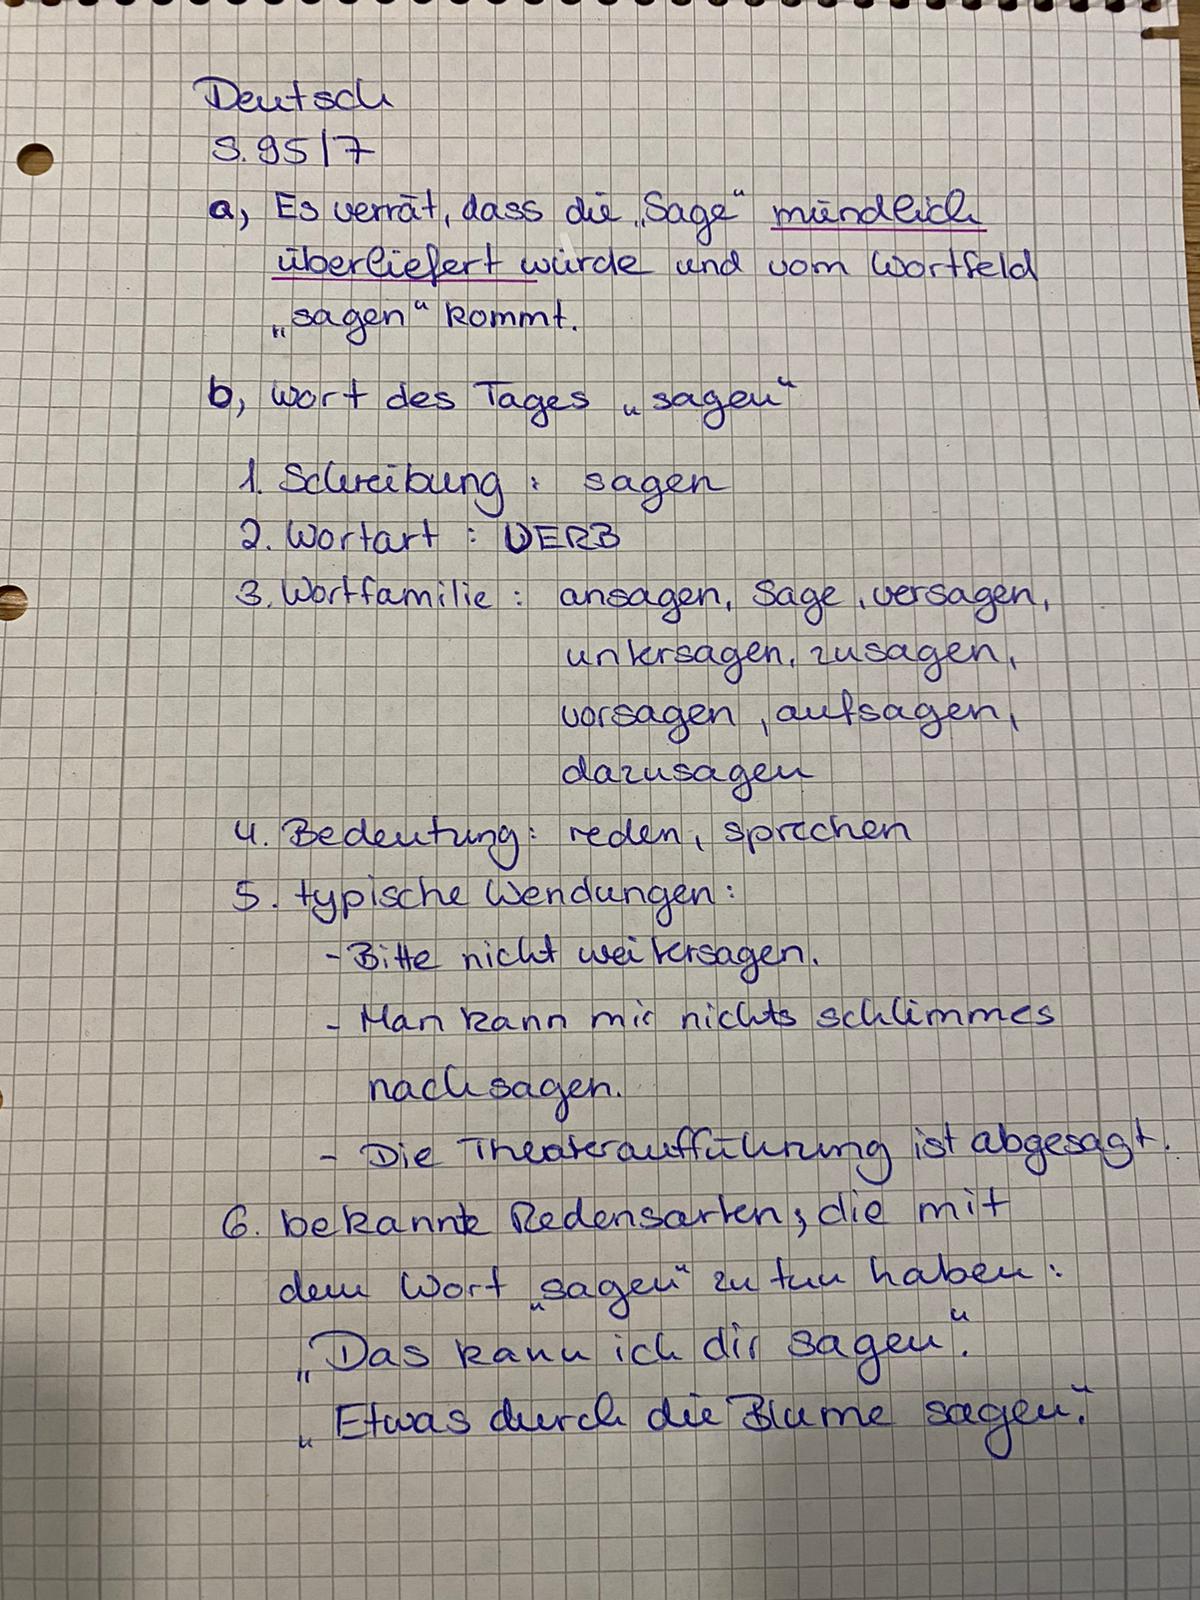 Deutsch
S. 95/7
a, Es verrät, dass die „Sage“ mündlich
überliefert würde und vom Wortfeld
„sagen“ kommt.
b, Wort des Tages „sagen“
1. Schreibung: sagen
2. Wortart: VERB
3. Wortfamilie: ansagen, Sage, versagen,
untersagen, zusagen,
vorsagen, aufsagen,
dazusagen
4. Bedeutung: reden, sprechen
5. typische Wendungen:
- Bitte nicht weitersagen.
- Man kann mir nichts schlimmes
nachsagen.
- Die Theateraufführung ist abgesagt.
6. bekannte Redensarten, die mit
dem Wort „sagen“ zu tun haben:
„Das kann ich dir sagen“.
„Etwas durch die Blume sagen.“